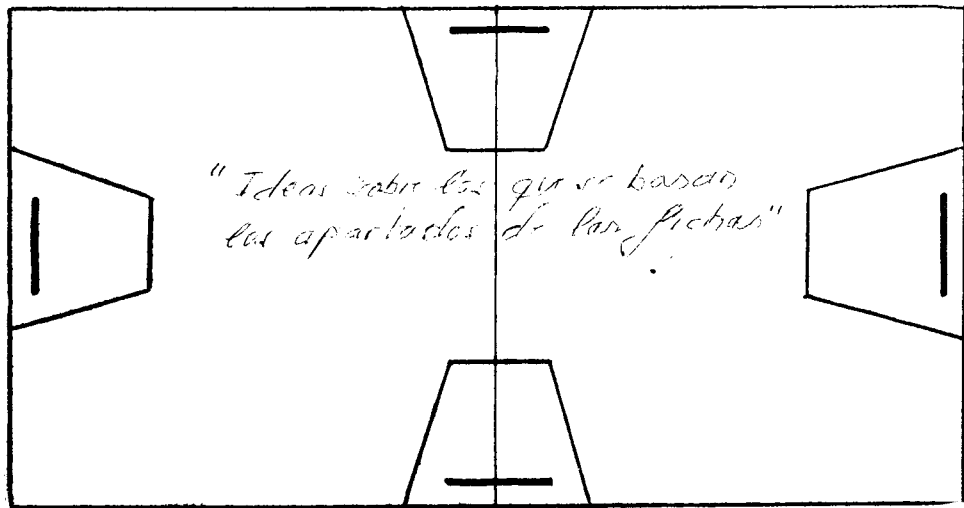 "Ideas sobre las que se basan
los apartados de las fichas"